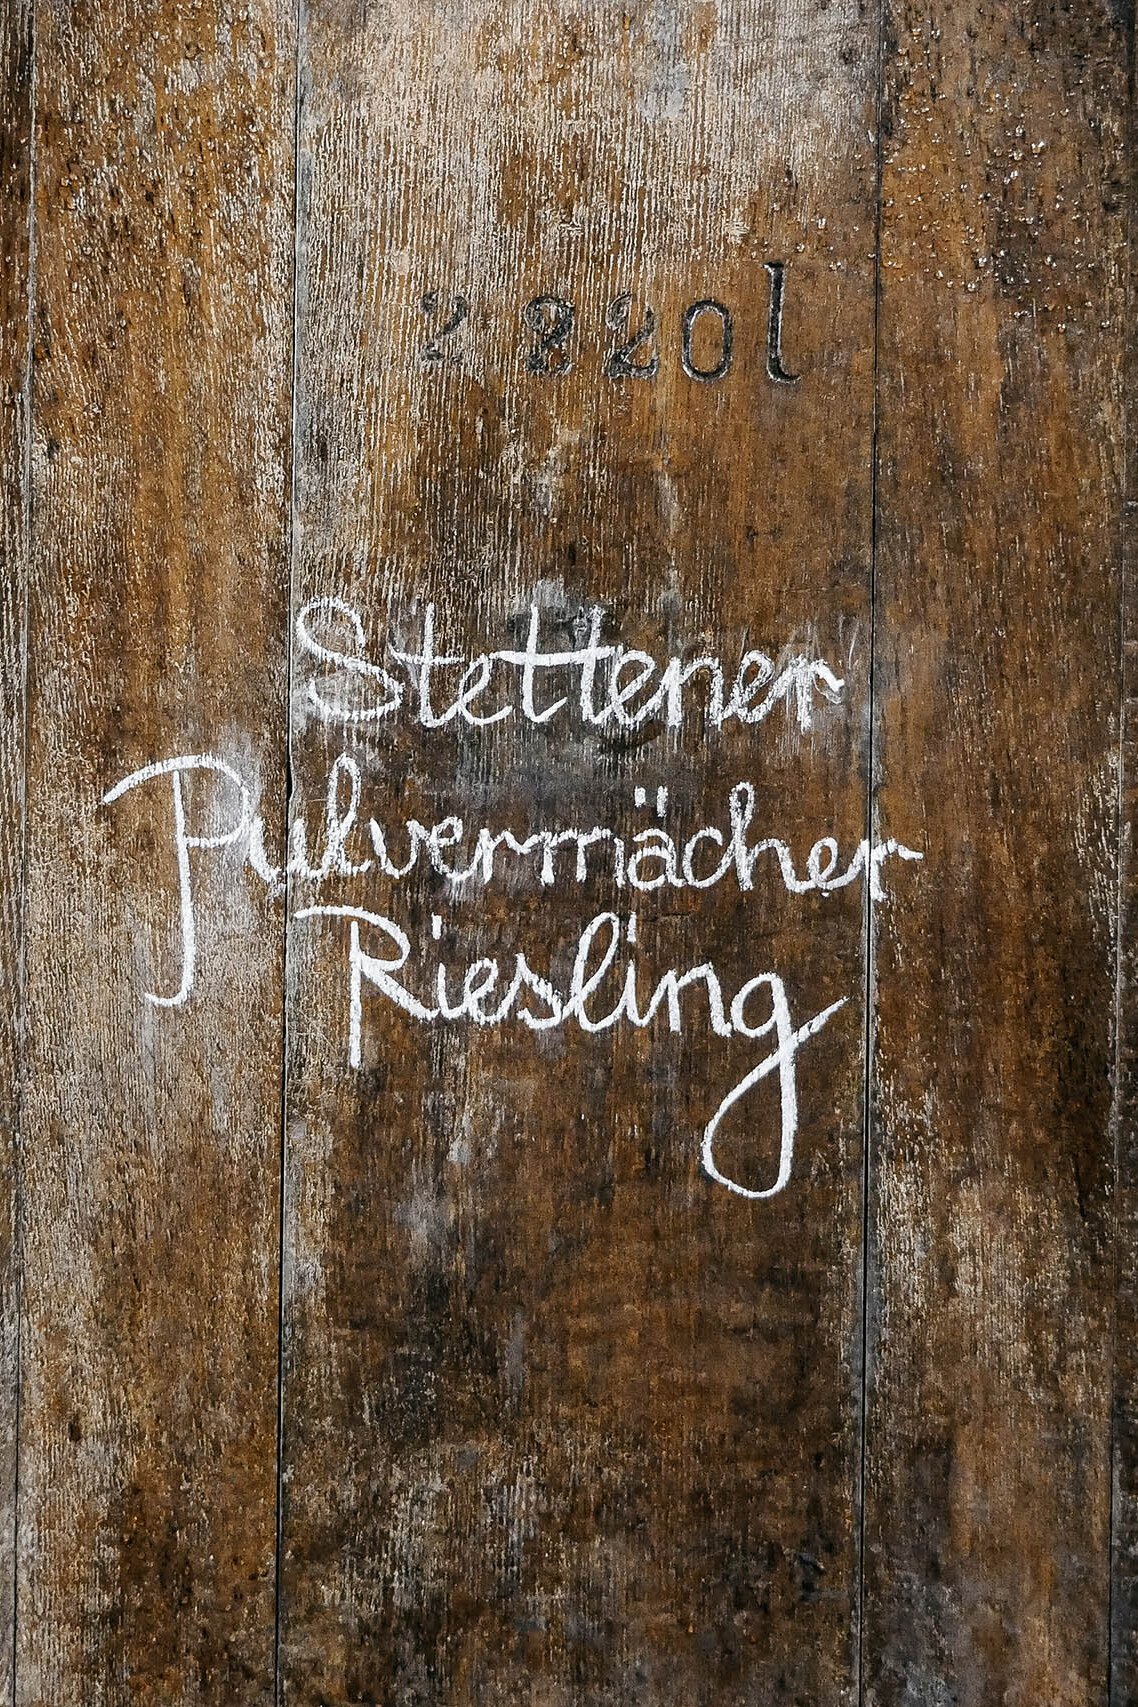 2220l
Stettener
Pulvermächer
Riesling